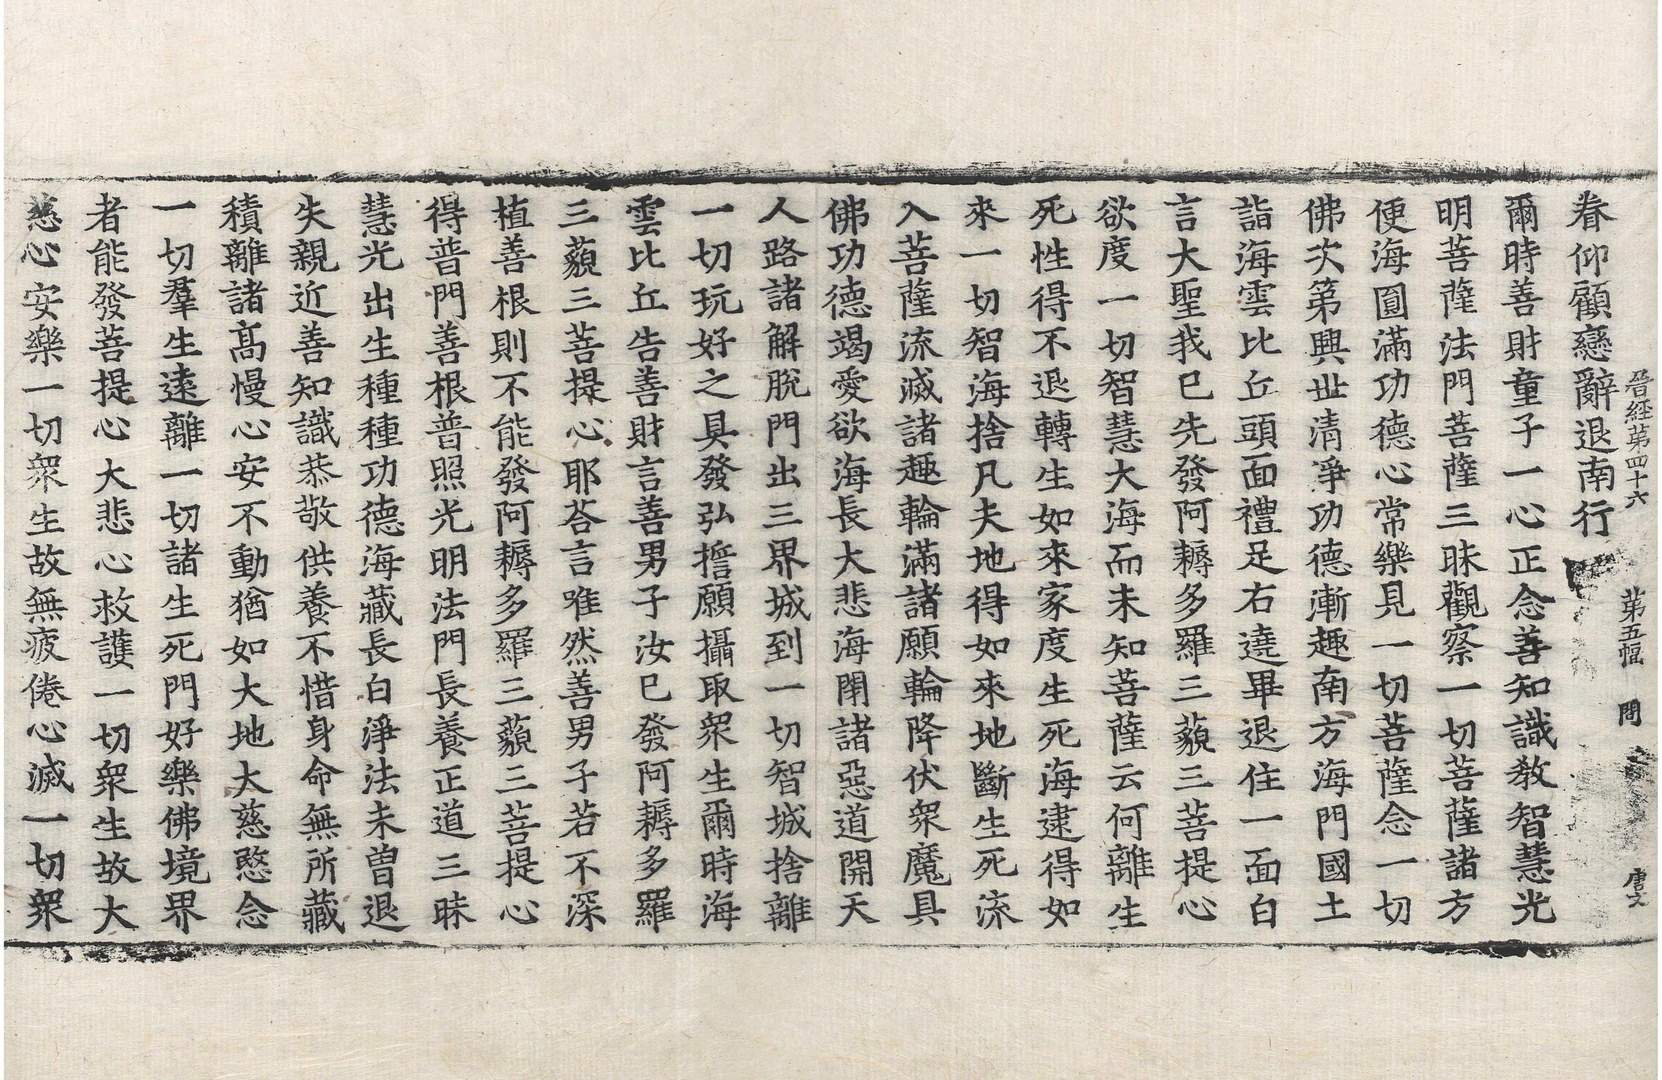 晉經第四十六 第五幅 問 唐文
眷仰顧戀辭退南行
爾時善財童子一心正念善知識教智慧光
明菩薩法門菩薩三昧觀察一切菩薩諸方
便海圓滿功德心常樂見一切菩薩念一切
佛次第興世清淨功德漸趣南方海門國土
詣海雲比丘頭面禮足右遶畢退住一面白
言大聖我已先發阿耨多羅三藐三菩提心
欲度一切智慧大海而未知菩薩云何離生
死性得不退轉生如來家度生死海逮得如
來一切智海捨凡夫地得如來地斷生死流
入菩薩流滅諸趣輪滿諸願輪降伏衆魔具
佛功德竭愛欲海長大悲海閉諸惡道開天
人路諸解脫門出三界城到一切智城捨離
一切玩好之具發弘誓願攝取衆生爾時海
雲比丘告善財言善男子汝已發阿耨多羅
三藐三菩提心耶荅言唯然善男子若不深
植善根則不能發阿耨多羅三藐三菩提心
得普門善根普照光明法門長養正道三昧
慧光出生種種功德海藏長白淨法未曽退
失親近善知識恭敬供養不惜身命無所藏
積離諸高慢心安不動猶如大地大慈愍念
一切羣生遠離一切諸生死門好樂佛境界
者能發菩提心大悲心救護一切衆生故大
慈心安樂一切衆生故無疲倦心滅一切衆